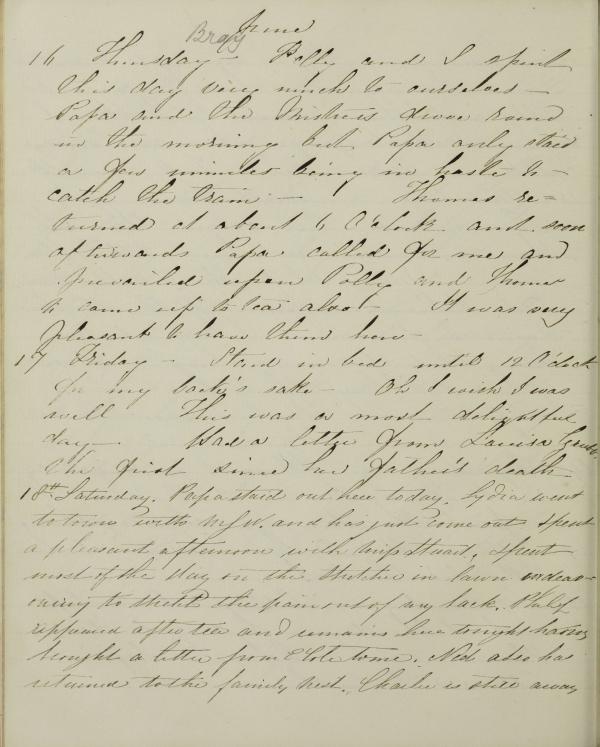 June
Bray
16 Thursday – Polly and I spent
this day very much to ourselves –
Papa and the Mistress drove round
in the morning but Papa only staid
a few minutes being in haste to
catch the train – Thomas re=
turned at about 6 O'clock and soon
afterwards Papa called for me and
prevailed upon Polly and Thomas
to come up to tea also – It was very
pleasant to have them here –
17 Friday – Staid in bed until 12 O'clock
for my back's sake – Oh I wish I was
well This was a most delightful
day – Had a letter from Louisa
the first since her father's death
18th Saturday. Papa staid out here today. Lydia went
to town with and has just come out. Spent
a pleasant afternoon with Miss Stuart, spent
most of the day on the stretcher in lawn endeav=
ouring to stretch the pain out of my back. Philip
appeared after tea and remains here tonight having
brought a letter from to me. Ned also has
returned to the family nest. Charlie is still away